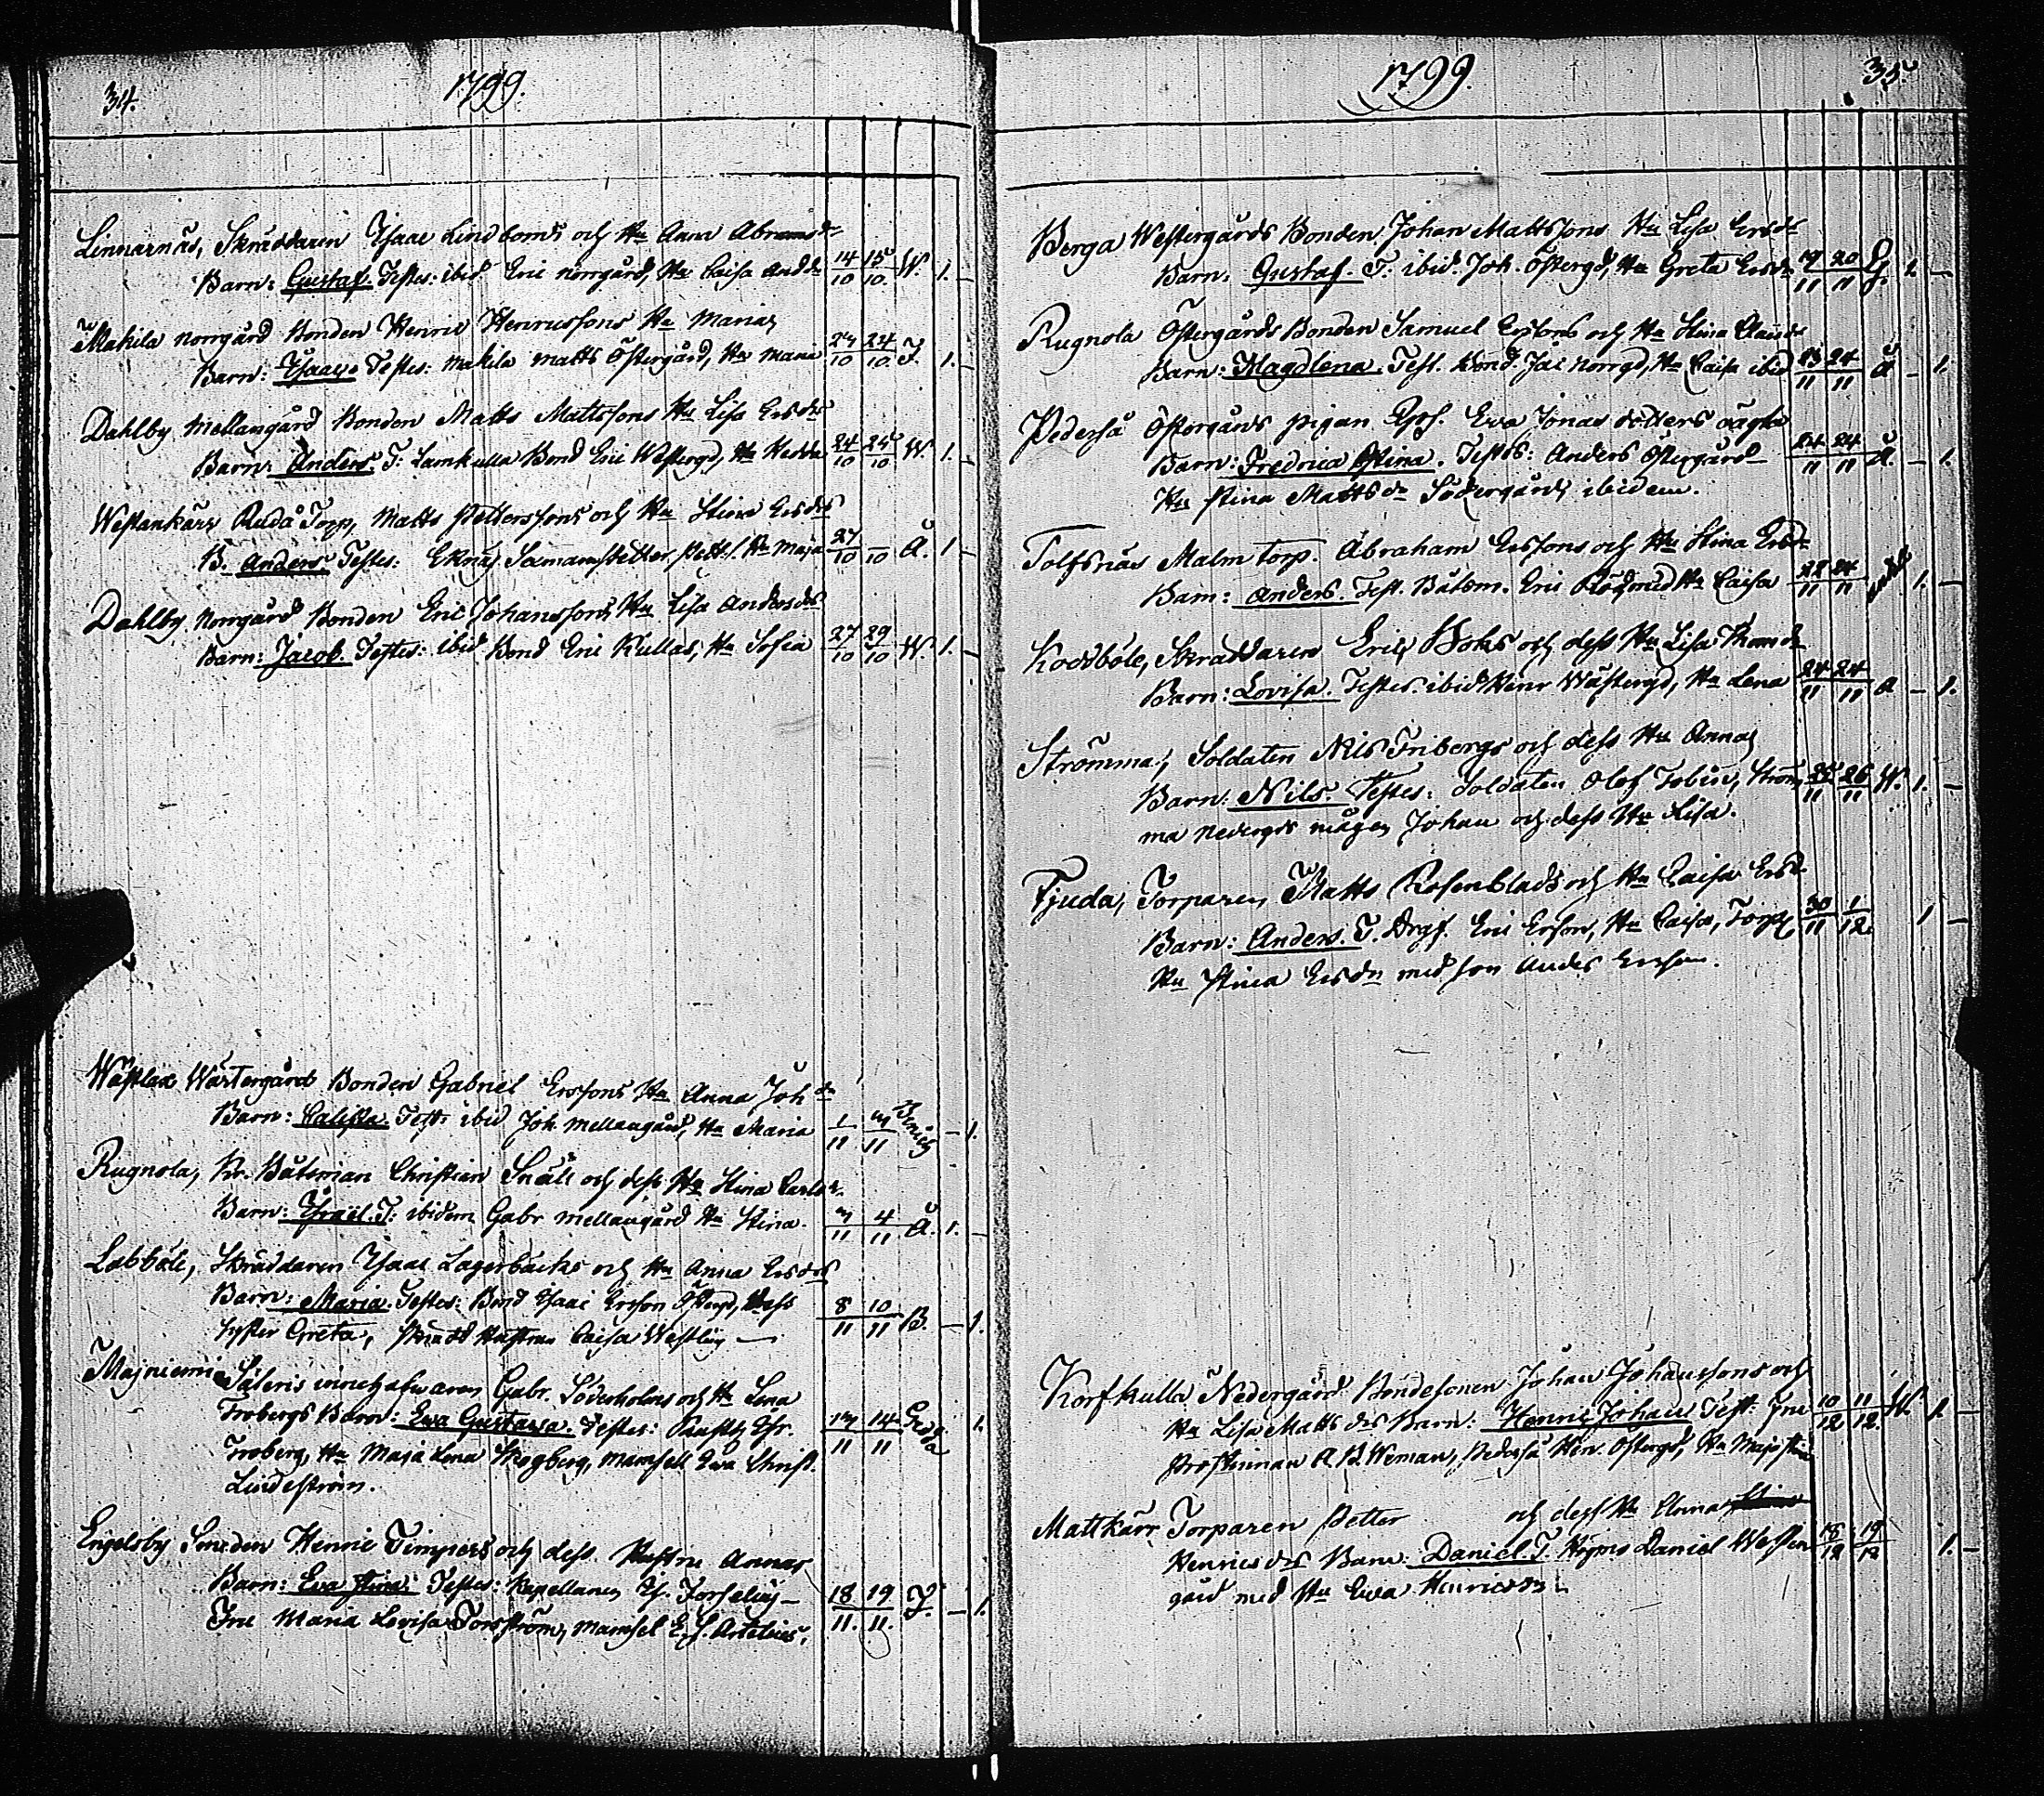 34. 1799.
Linnarnäs, Skräddaren Isaac Lindboms och Hu Anna Abramsdr
Barn: Gustaf. Testes: ibid Eric norrgård, Hu Caisa Andsdr 14/10 15/10. W. 1. –
Makila norrgård Bonden Henric Henricssons Hu Maria
Barn: Isaac. Testes: Makila Matts Östergård, Hu Maria 23/10 24/10. F. 1.
Dahlby Mellangård Bonden Matts Mattssons Hu Lisa Ersdr
Barn: Anders. T: Lamkulla Bond Eric Westergd, Hu Hedda 24/10 25/10 W. 1. –
Westankärr Rudå Torp, Matts Petterssons och Hu Stina Ersdr
B. Anders. Testes: Eknäs Petter Hu Maja 27/10 /10 Å. 1 –
Dahlby Norrgård Bonden Eric Johanssons Hu Lisa Andersdr
Barn: Jacob. Testes: ibid Bond Eric Kullas, Hu Sofia 27/10 29/10 W. 1. –
Wästlax Wästergård Bonden Gabriel Erssons Hu Anna Johdr
Barn: Calista. Test: ibid Joh. Mellangård, Hu Maria 1/11 3/11 – 1.
Rugnola, Kr. Båtsman Christian Snäll och dess Hu Stina Carlsdr.
Barn: Israël. T: ibidem Gabr Mellangård Hu Stina. 3/11 4/11 Å. 1. –
Labböle, Skräddaren Isaac Lagerbäcks och Hu Anna Ersdrs
Barn: Maria. Testes: Bond Isaac Erson Östergd, dess 8/11 10/11 B. – 1.
syster Greta, Skrädd Hustrun Caisa Westling –
Majniemi Säteris Gabr. Söderholms och Hu Lena
Frobergs Barn: Ewa Gustawa. Testes: 13/11 14/11 1.
Froberg, Hu Maja Lena Skogberg, Mamsell Ewa Christ.
Lindeström.
Engelsby Smeden Henric Timpers och dess Hustru Annas
Barn: Eva Stina. Testes: Kapellanen Is. Forselius – 18/11. 19/11. F. – 1.
Fru Maria Lovisa Torsström, Mamsel
1799. 35
Berga Westergårds Bonden Johan Mattssons Hu Lisa Ersdr
Barn: Gustaf. T: ibid. Joh. Östergd, Hu Greta Ersdr 19/11 20/11 G. 1. –
Rugnola Östergårds Bonden Samuel Erssons och Hu Stina
Barn: Magdlena. Test. Bond. Norrgd, Hu Caisa ibid 23/11 24/11 Å – 1.
Pederså Östergårds pigan Eva Jonas dotters oägta
Barn: Fredrica Stina. Testes: Anders Östergård 24/11 24/11 Å. – 1.
Hu Stina Mattsdr Södergård, ibidem.
Tolfsnäs Malm torp. Abraham Erssons och Hu Stina Ersdr
Barn: Anders. Test. Båtsm. Eric med Hu Caisa 22/11 24/11 1. –
Kodböle, Skräddaren Eric Boks och dess Hu Lisa Thomdr
Barn: Lovisa. Testes: ibid Henr Wästergd, Hu Lena 24/11 24/11 – 1.
Strömma, Soldaten Nils Fribergs och dess Hu Anna
Barn: Nils. Testes: Soldaten Olof Tobin, Ström 25/11 26/11 W. 1. –
ma nedergds mågen Johan och dess Hu Lisa.
Tjuda, Torparen Matts Rosenblads och Hu Caisa Ersd.
Barn: Anders. T. Eric Erson, Hu Caisa, Torp. 30/11 1/12 1 –
Hu Stina Ersdr med son Anders Ersson.
Korfkulla Nedergård Bondesonen Johan Johanssons och
Hu Lisa Matts drs Barn: Henric Johan Test: Fru 10/12 11/12. W. 1. –
Prostinnan A B Weman, Pederså Hen. Östergd, Hu Maja Stina
Mattkärr Torparen Petter och dess Hu Anna
Henricsdrs Barn: Daniel. T. Daniel Wester 18/12 19/12 1. –
gård med Hu Ewa Henricsdr.